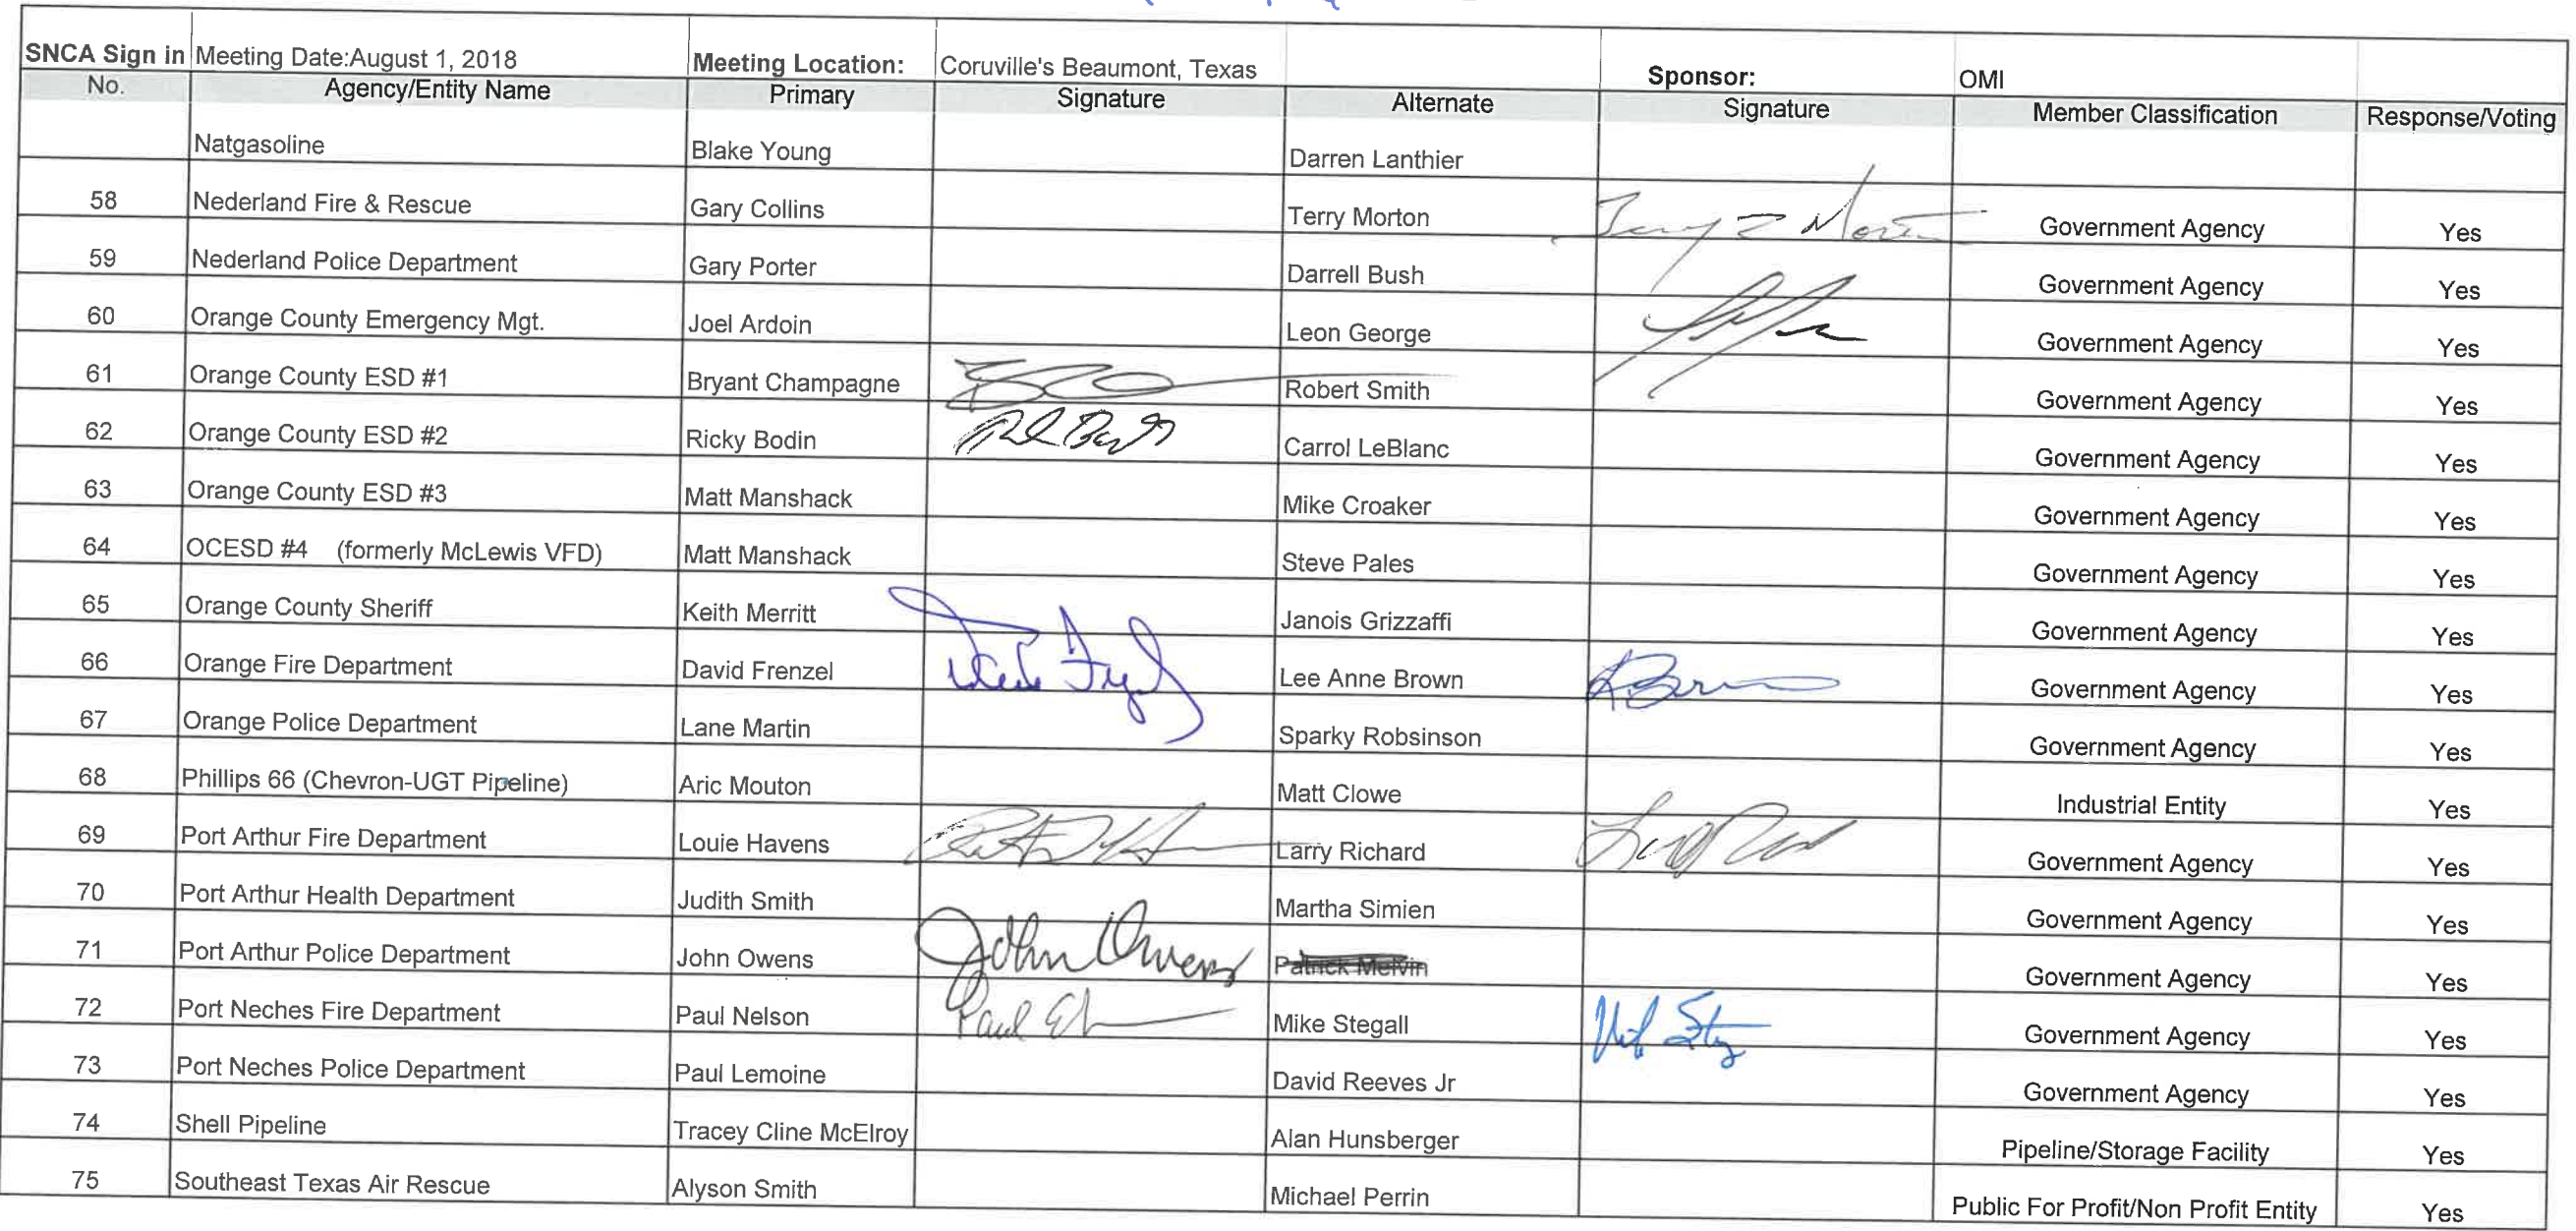 SNCA Sign in Meeting Date:August 1, 2018 Meeting Location: Coruville's Beaumont, Texas Sponsor: OMI
No. Agency/Entity Name Primary Signature Alternate Signature Member Classification Response/Voting
Natgasoline Blake Young Darren Lanthier
58 Nederland Fire & Rescue Gary Collins Terry Morton Government Agency Yes
59 Nederland Police Department Gary Porter Darrell Bush Government Agency Yes
60 Orange County Emergency Mgt. Joel Ardoin Leon George Government Agency Yes
61 Orange County ESD #1 Bryant Champagne Robert Smith Government Agency Yes
62 Orange County ESD #2 Ricky Bodin Carrol LeBlanc Government Agency Yes
63 Orange County ESD #3 Matt Manshack Mike Croaker Government Agency Yes
64 OCESD #4 (formerly McLewis VFD) Matt Manshack Steve Pales Government Agency Yes
65 Orange County Sheriff Keith Merritt Janois Grizzaffi Government Agency Yes
66 Orange Fire Department David Frenzel Lee Anne Brown Government Agency Yes
67 Orange Police Department Lane Martin Sparky Robsinson Government Agency Yes
68 Phillips 66 (Chevron-UGT Pipeline) Aric Mouton Matt Clowe Industrial Entity Yes
69 Port Arthur Fire Department Louie Havens Larry Richard Government Agency Yes
70 Port Arthur Health Department Judith Smith Martha Simien Government Agency Yes
71 Port Arthur Police Department John Owens John Owens Patrick Melvin Government Agency Yes
72 Port Neches Fire Department Paul Nelson Paul Mike Stegall Government Agency Yes
73 Port Neches Police Department Paul Lemoine David Reeves Jr Government Agency Yes
74 Shell Pipeline Tracey Cline McElroy Alan Hunsberger Pipeline/Storage Facility Yes
75 Southeast Texas Air Rescue Alyson Smith Michael Perrin Public For Profit/Non Profit Entity Yes